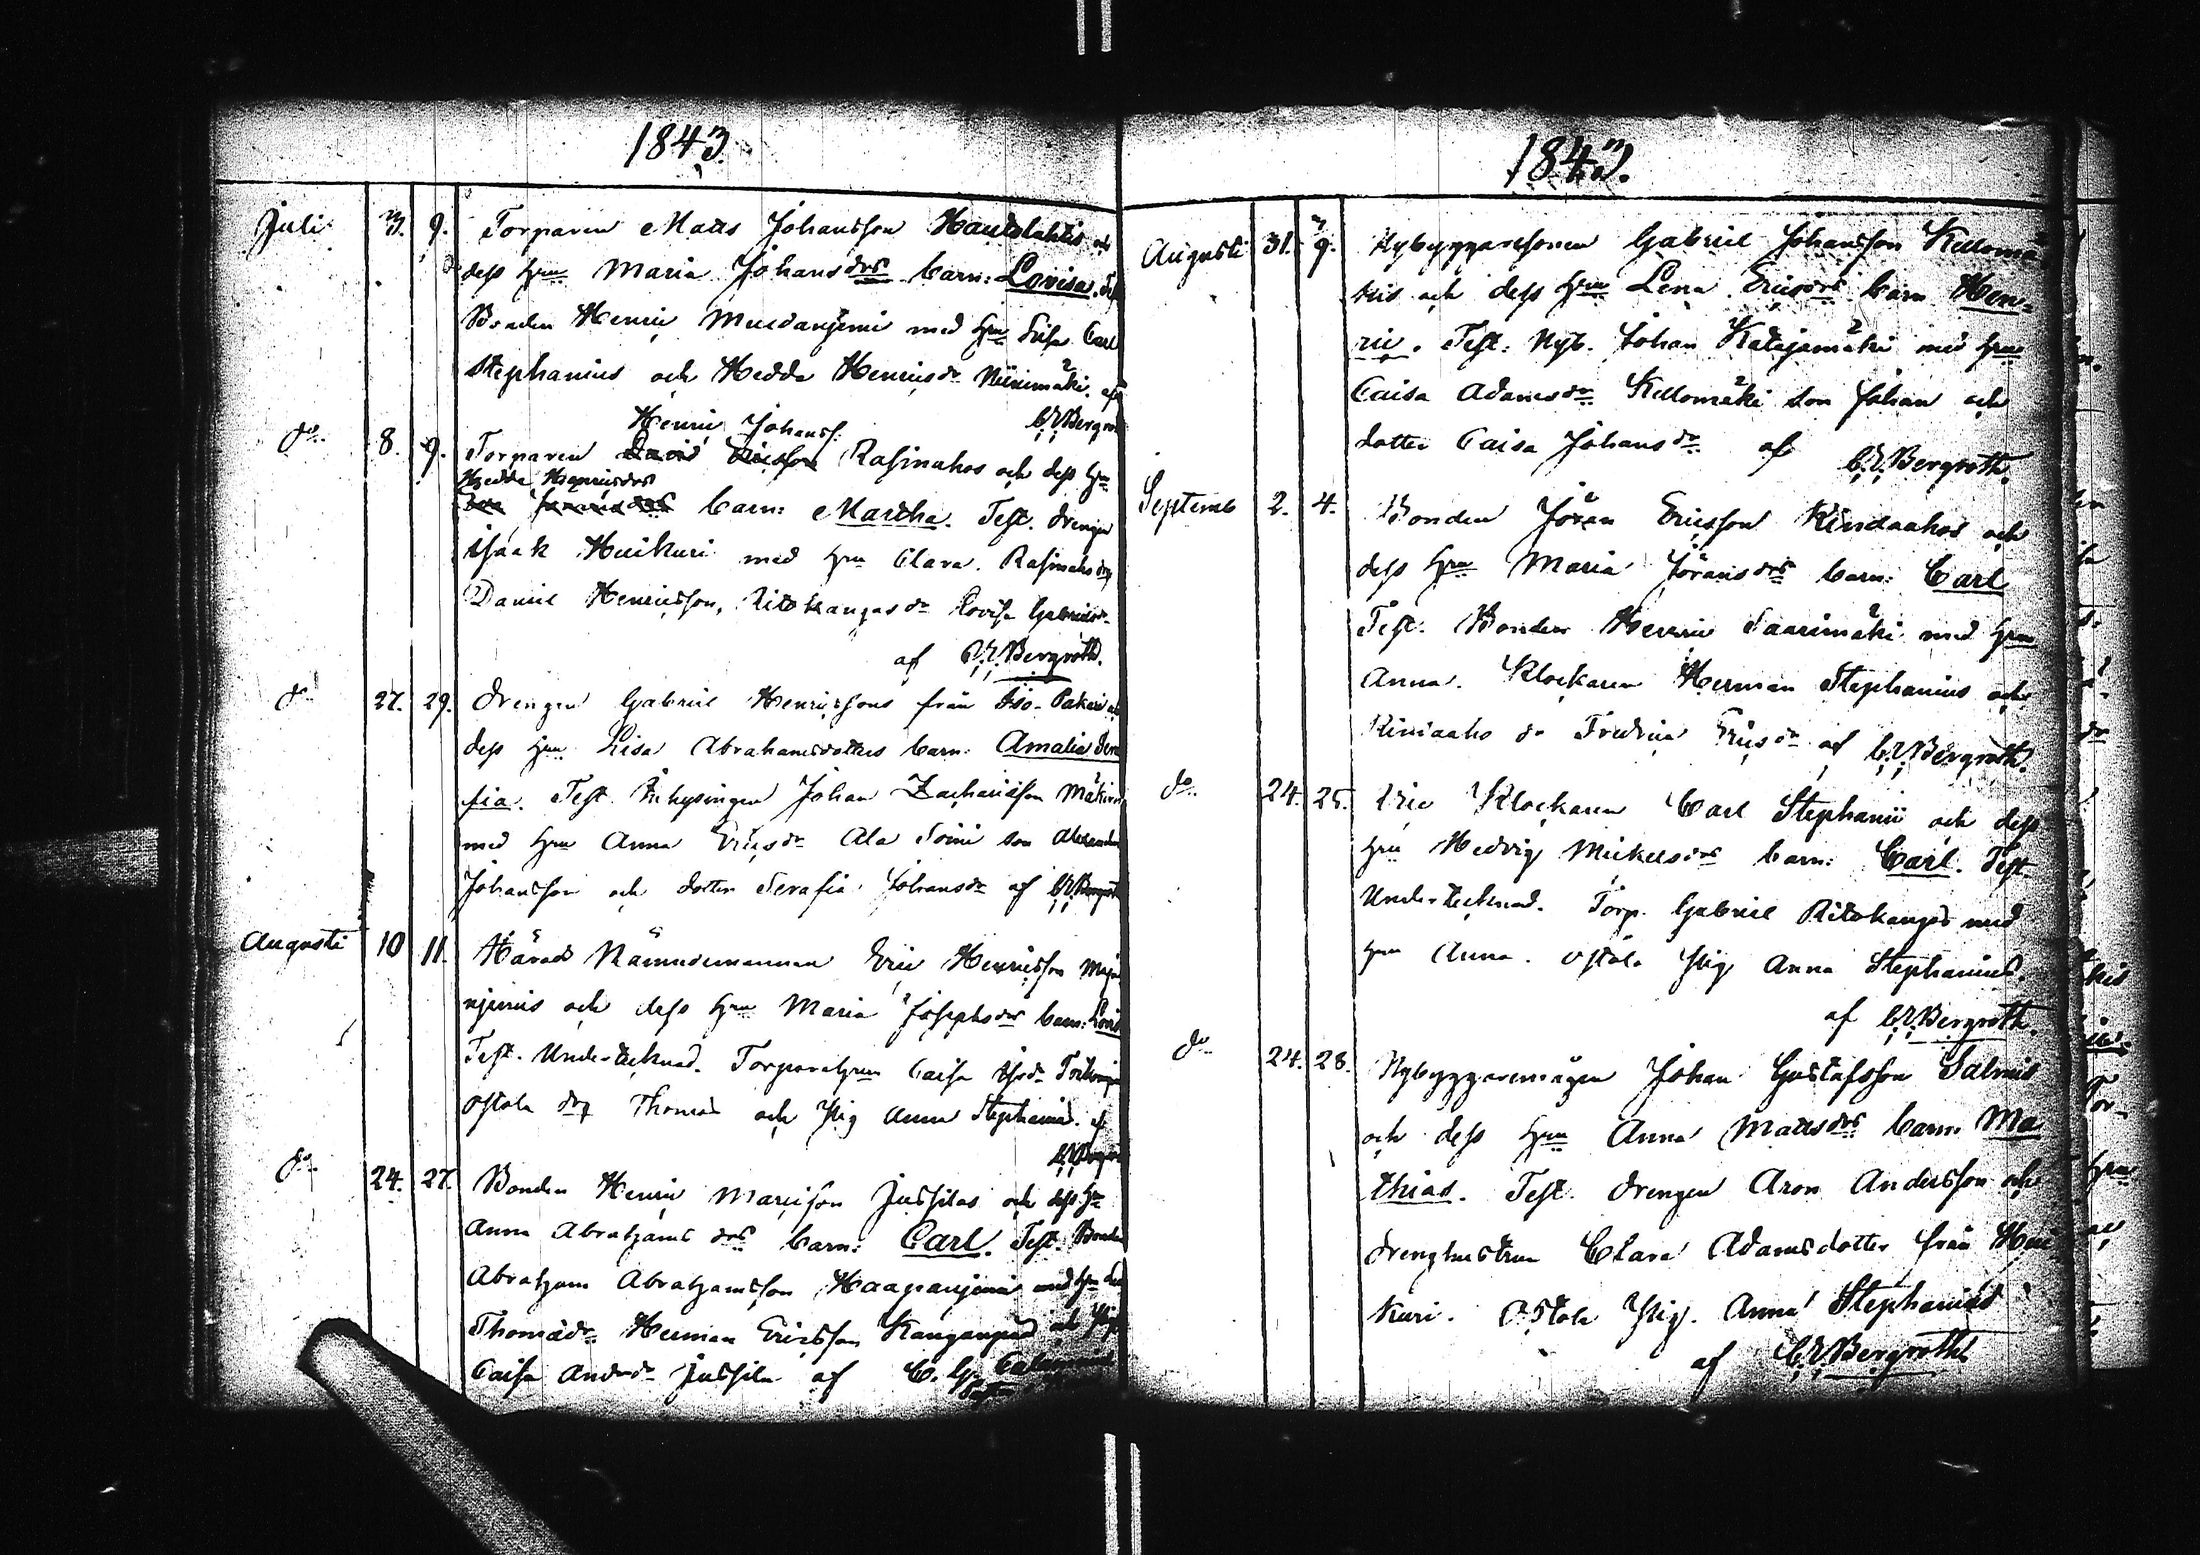 1843
Juli 3. 9. Torparen Matts Johansson Hautalahtis och
dess Hru Maria Johansdrs barn: Lovisa. Test.
Bonden Henric Mustanjemi med Hru Carl
Stephanius och Hedda Henricsdr Niinimäki. af
C.E. Bergroth
Henric Johanss.
do 8. 9. Torparen David Ericsson Rasinahos och dess Hru
Hedda Henricsdrs
barn: Martha. Test. Drengen
Isaak Huikuri med Hru Clara. Rasinaho drg
Daniel Henricsson, Ritokangas dr Lovisa Gabrielsdr
af C.E. Bergroth.
do 27. 29. Drengen Gabriel Henricssons från Iso-Pakari och
dess Hru Lisa Abrahamsdotters barn: Amalia Sera
fia. Test. Inhysingen Johan Zachariasson
med Hru Anna Ericsdr Ala Soini son Alexander
Johansson och dotter Serafia Johansdr af C.E. Bergroth
Augusti 10 11. Härads Nämndemannen Eric Henricsson
njemis och dess Hru Maria Josephsdrs barn: Lovisa
Test. Undertecknad. Torparehrun Caisa
Ostola drg Thomas och Pig Anna Stephanius. af
C.E. Bergroth
do 24. 27. Bonden Henric Maricson Jussilas och dess Hru
Anna Abrahams drs barn: Carl. Test: Bonden
Abraham Abrahamsson Haapanjemi med Hru
Thomädr Herman Ericsson Kangaspää och Pig
Caisa Andrsdr Jussila af C. G. Calamnius
1843.
Augusti 31. 9. Nybyggaresonen Gabriel Johansson Kellomä
kis och dess Hru Lena Ericsdrs barn Hen-
ric. Test: Nyb. Johan Katajamäki med Hru
Caisa Adamsdr Kellomäki son Johan och
dotter Caisa Johansdr af C.E. Bergroth.
Septemb 2. 4. Bonden Jöran Ericsson Kindaahos och
dess Hru Maria Jöransdrs barn: Carl
Test: Bonden Henric Saarimäki med Hru
Anna. Klockaren Herman Stephanius och
Kindaaho dr Fredrica Ericsdr af C.E. Bergroth.
do 24. 25. Vice Klockaren Carl Stephanii och dess
Hru Hedvig Mickelsdrs barn: Carl. Test
Undertecknad. Torp. Gabriel Ritokangas med
Hru Anna. Ostola Pig Anna Stephanius.
af C.E. Bergroth.
do 24. 28. Nybyggaremågen Johan Gustafsson Salmis
och dess Hru Anna Mattsdrs barn: Ma
thias. Test. Drengen Aron Andersson och
Drenghustrun Clara Adamsdotter från Hui
kuri. Ostola Pig. Anna Stephanius
af C.E. Bergroth